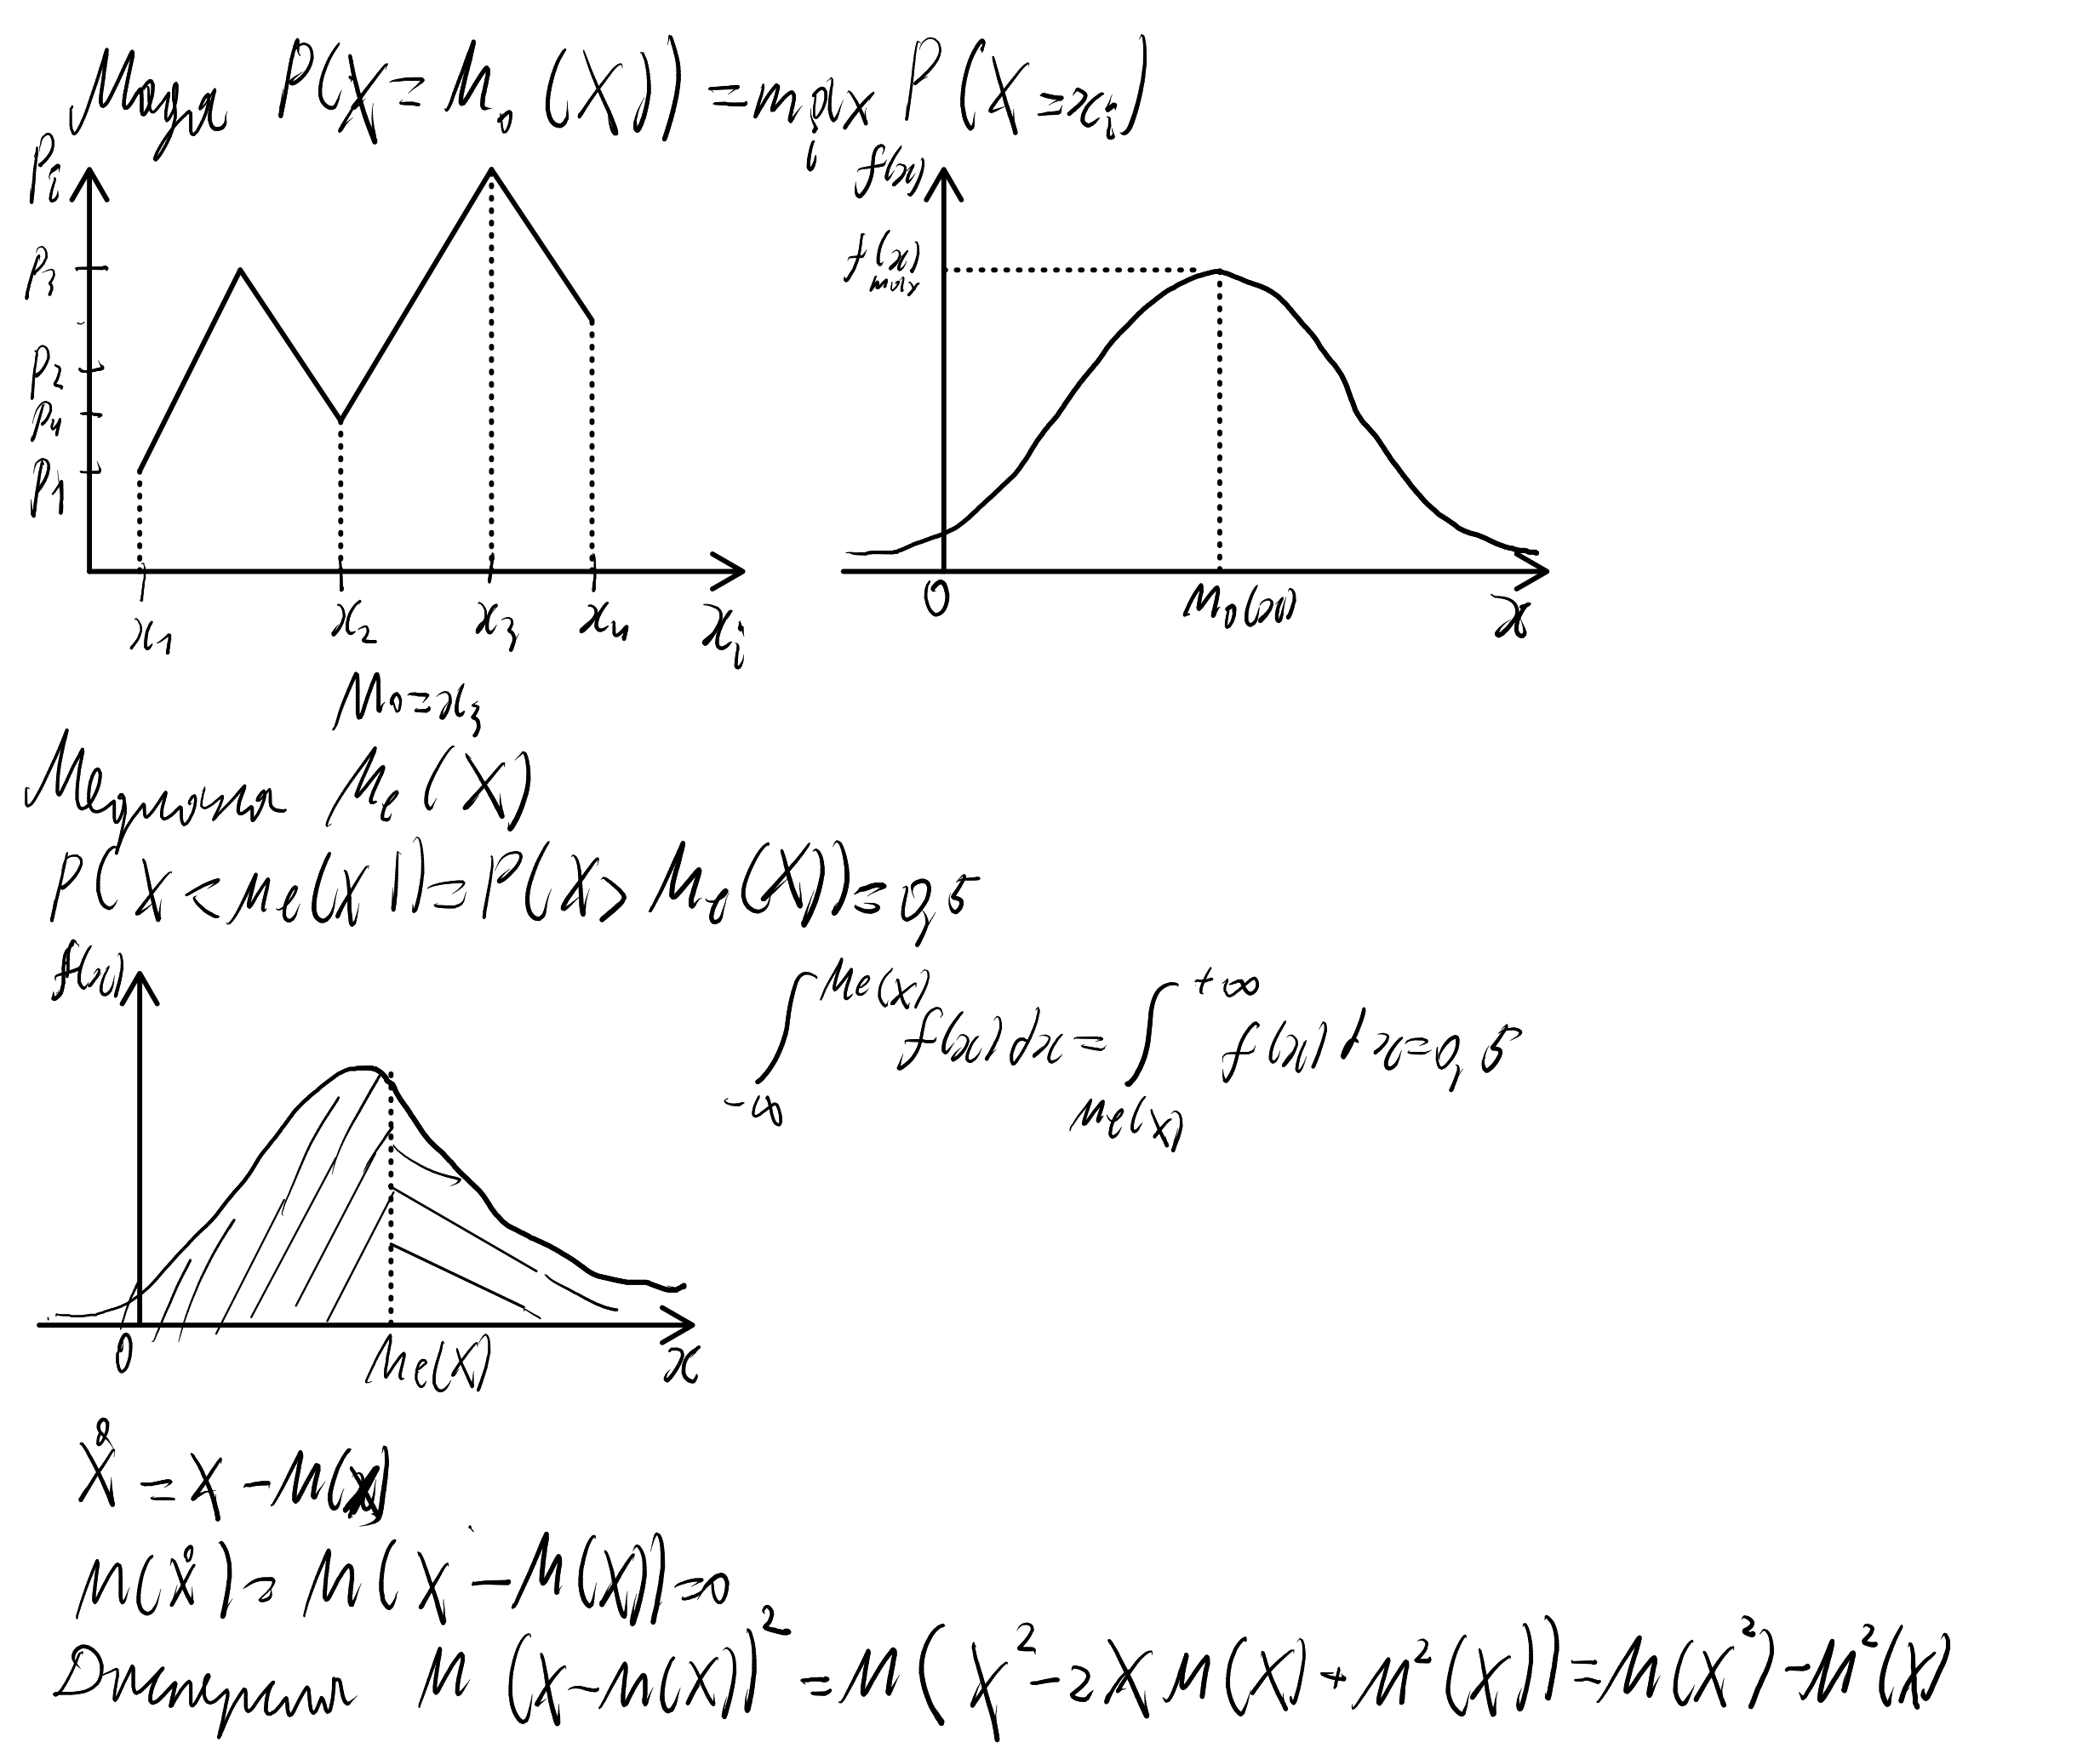 Мода P(X=M₀(X))=max P(X=xᵢ)
i
Pᵢ
P₃
P₂
P₄
P₁
x₁ x₂ x₃ x₄ xᵢ
M₀=x₃
f(x)
f(x)
max
0 M₀(x) x
Медиана Me(X)
P(X<Me(X))=P(X>Me(X))=0,5
f(x)
0 Me(X) x
∫_{-∞}^{Me(X)} f(x)dx=∫_{Me(X)}^{+∞} f(x)dx=0,5
X̊=X-M(X)
M(X̊)=M(X-M(X))=0
Дисперсия M(X-M(X))²=M(X²-2XM(X)+M²(X))=M(X²)-M²(X)